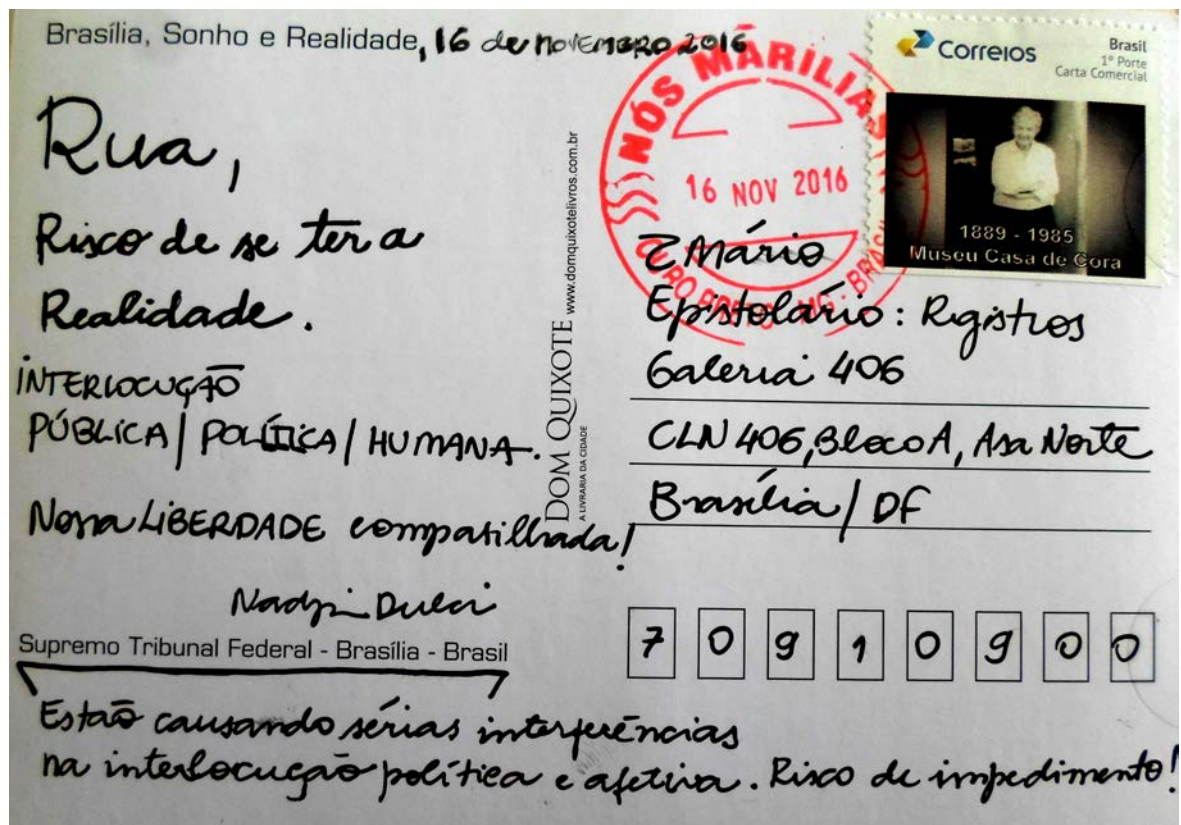 Brasília, Sonho e Realidade, 16 de NOVEMBRO 2016
Rua,
Risco de se ter a
Realidade.
INTERLOCUÇÃO
PÚBLICA / POLÍTICA / HUMANA.
Nossa LIBERDADE compartilhada!
Supremo Tribunal Federal - Brasília - Brasil
Estão causando sérias interferências
na interlocução política e afetiva. Risco de impedimento!
DOM QUIXOTE www.domquixotelivros.com.br
A LIVRARIA DA CIDADE
NÓS MARÍLIAS
16 NOV 2016
OURO PRETO - MG - BRASIL
Correios
Brasil
1º Porte
Carta Comercial
1889 - 1985
Museu Casa de Cora
Mário
Epistolário: Registros
Galeria 406
CLN 406, Bloco A, Asa Norte
Brasília / DF
7 0 9 1 0 9 0 0